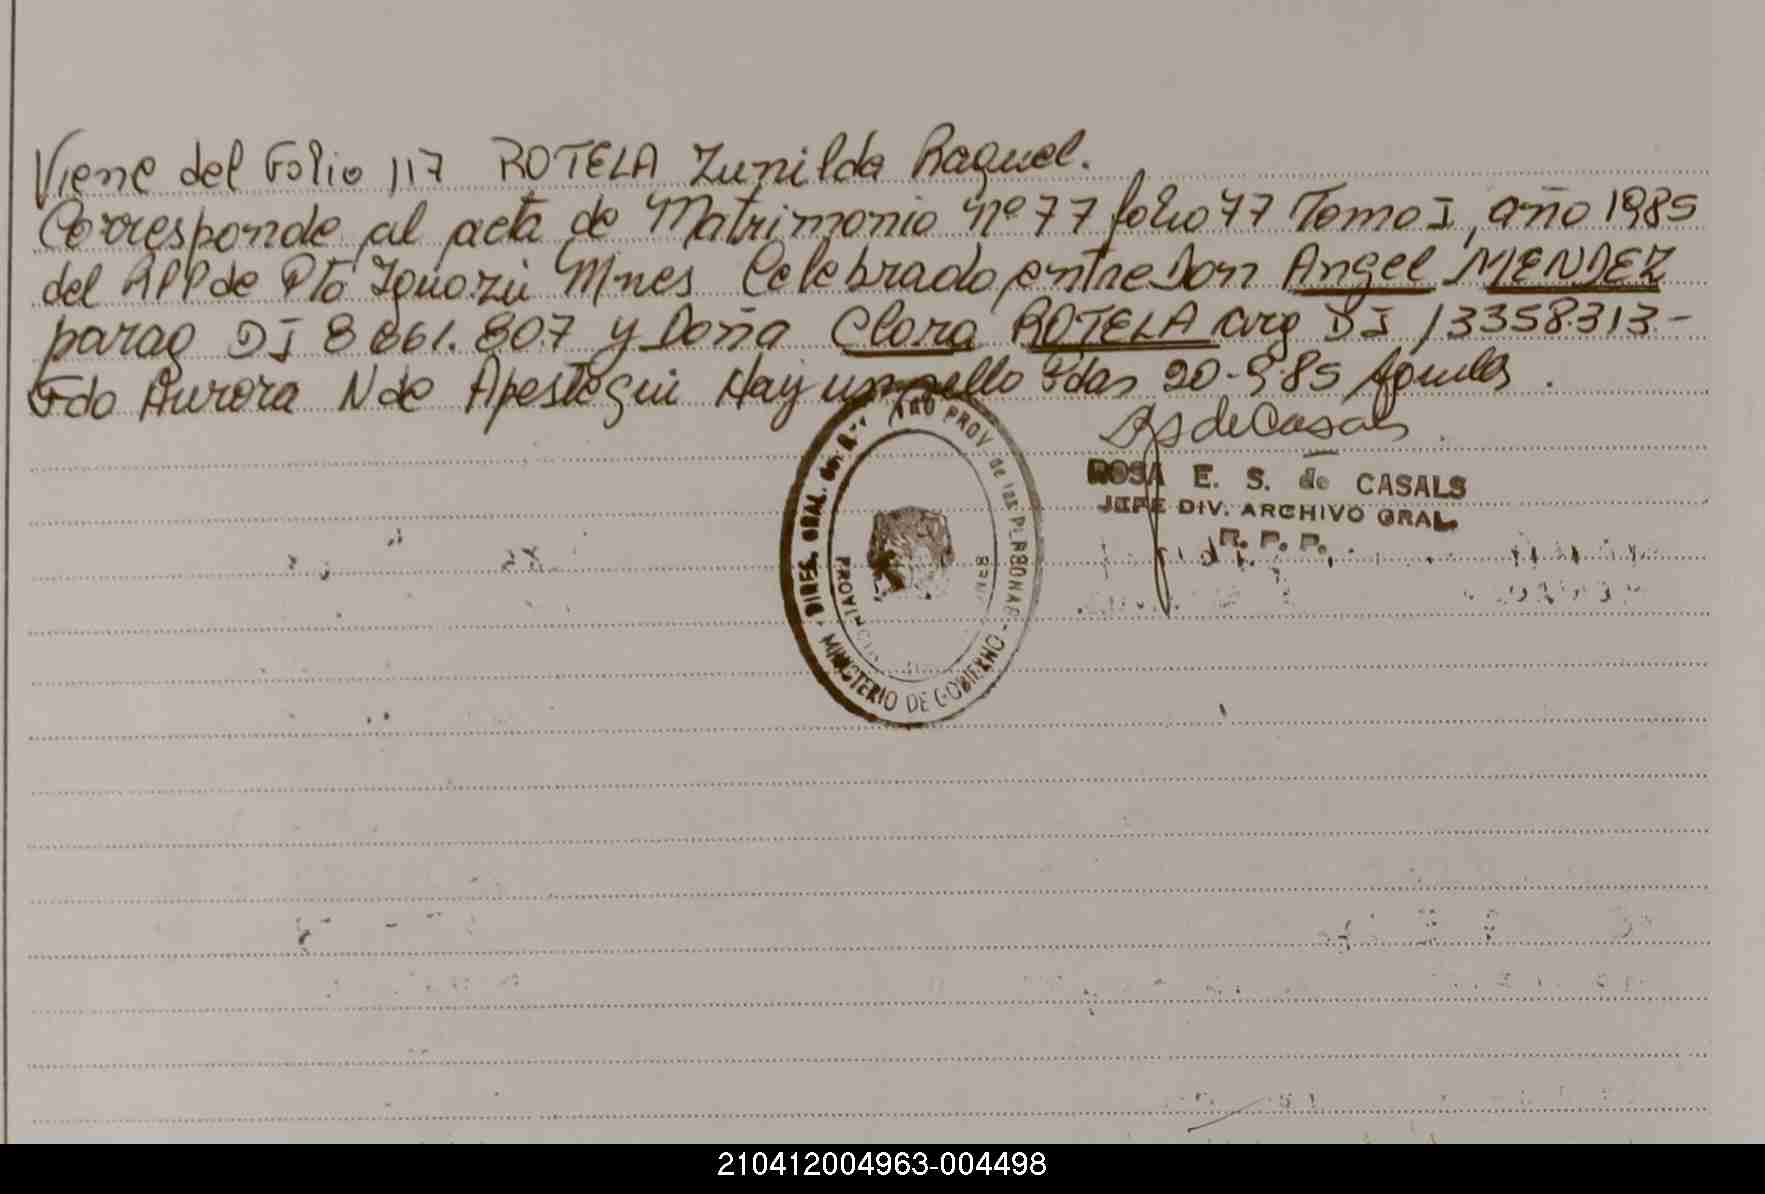 Viene del Folio 117 ROTELA Zunilda Raquel.
Corresponde al acta de Matrimonio Nº 77 folio 77 Tomo I, año 1985
del RPP de Pto Iguazú Mnes Celebrado, entre Don Angel MENDEZ
parag DI 8 861.807 y Doña Clara ROTELA arg DI 13358.313.-
Fdo Aurora N de Apestegui Hay un sello Pdas 20-9-85
ROSA E. S. de CASALS
JEFE DIV. ARCHIVO GRAL.
R. P. P.
DIREC. GRAL. del PROV. de las PERSONAS
MINISTERIO DE GOBIERNO
210412004963-004498